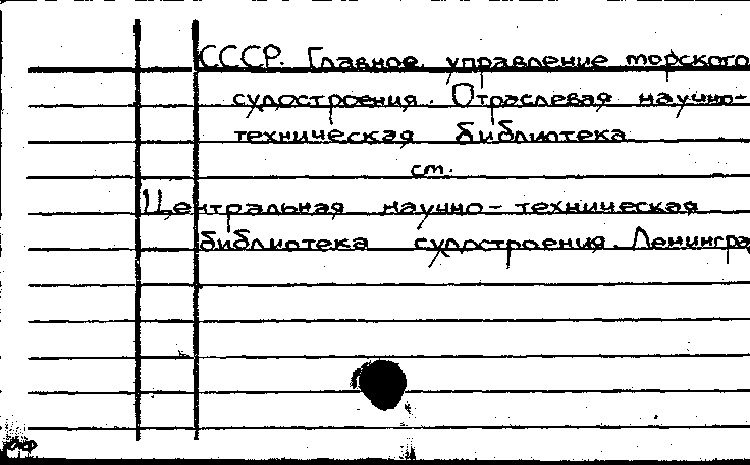 СССР. Главное управление морского
судостроения. Отраслевая научно-
техническая библиотека
см.
Центральная научно-техническая
библиотека судостроения. Ленингра